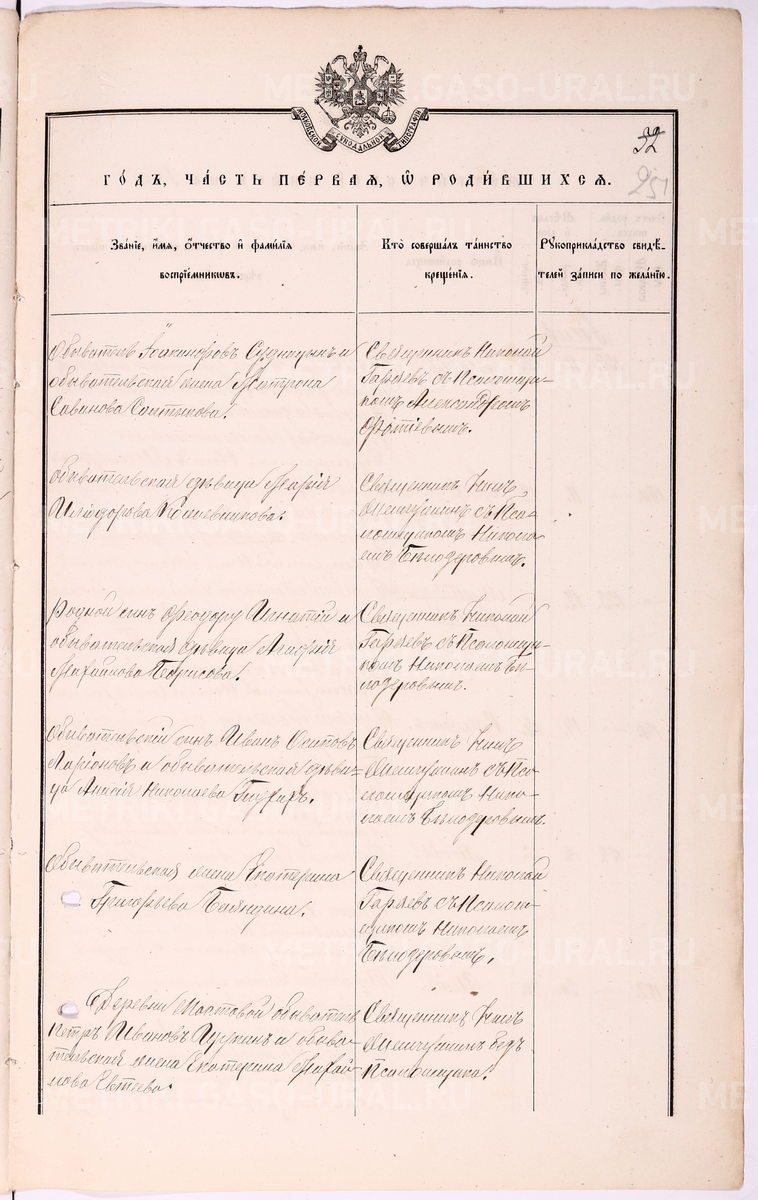 МОСКОВСКОЙ СѴНОДАЛЬНОЙ ТИПОГРАФІИ
32
251
ГО́ДЪ, ЧА́СТЬ ПЕ́РВАЯ, Ѡ РОДИ́ВШИХСЯ.
Зва́нїе, и҆́мя, ѻ҆́тчество и҆ фами́лїя
воспрїе́мниковъ.
Кто̀ соверша́лъ та́инство
креще́нїя.
Рꙋкоприкла́дство свидѣ́-
телей за́писи по жела́нїю.
Обыватель Іоакинфовъ и
обывательская жена Матрона
Савинова
Священникъ Николай
Гаряевъ съ Псаломщи-
комъ Александромъ
Фотіевымъ.
обывательская дѣвица Марія
Илиодорова Кошевникова.
Священникъ
съ Пса-
ломщикомъ Никола-
емъ Бѣлодеровымъ.
Родной сынъ Феодору Игнатій и
обывательская дѣвица
Михайлова Борисова.
Священникъ Николай
Гаряевъ съ Псаломщи-
комъ Николаемъ Бѣ-
лодеровымъ.
Обывательскій сынъ Иванъ Осиповъ
Ларіоновъ и обывательская дѣви-
ца Николаева
Священникъ
съ Пса-
ломщикомъ Нико-
лаемъ Бѣлодеровымъ.
Обывательская жена Екатерина
Григорьева Баяндина.
Священникъ Николай
Гаряевъ съ Псалом-
щикомъ Николаемъ
Бѣлодеровымъ.
Деревни Мостовой обыватель
Петръ Ивановъ и обыва-
тельская жена Екатерина Михай-
лова Евтѣева.
Священникъ
безъ
Псаломщика.